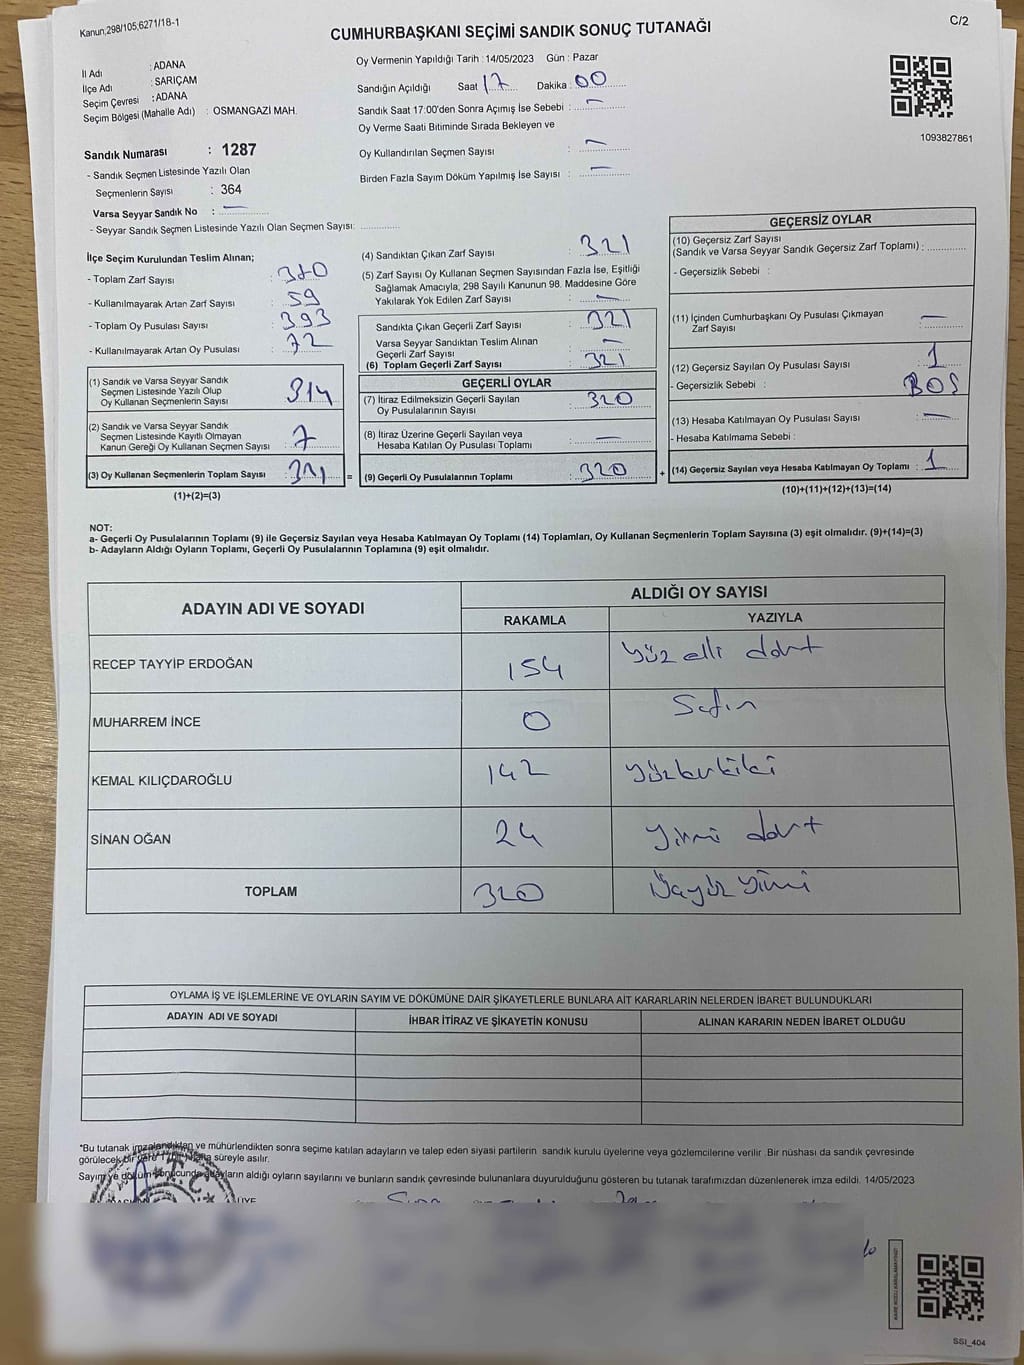 Kanun,298/105,6271/18-1
C/2
CUMHURBAŞKANI SEÇİMİ SANDIK SONUÇ TUTANAĞI
İl Adı : ADANA
İlçe Adı : SARIÇAM
Seçim Çevresi : ADANA
Seçim Bölgesi (Mahalle Adı) : OSMANGAZİ MAH.
Oy Vermenin Yapıldığı Tarih : 14/05/2023 Gün : Pazar
Sandığın Açıldığı Saat 17 Dakika 00
Sandık Saat 17:00'den Sonra Açımış İse Sebebi : —
Oy Verme Saati Bitiminde Sırada Bekleyen ve
Oy Kullandırılan Seçmen Sayısı : —
Birden Fazla Sayım Döküm Yapılmış İse Sayısı : —
1093827861
Sandık Numarası : 1287
- Sandık Seçmen Listesinde Yazılı Olan
Seçmenlerin Sayısı : 364
Varsa Seyyar Sandık No : —
- Seyyar Sandık Seçmen Listesinde Yazılı Olan Seçmen Sayısı: ..............
İlçe Seçim Kurulundan Teslim Alınan;
- Toplam Zarf Sayısı : 380
- Kullanılmayarak Artan Zarf Sayısı : 59
- Toplam Oy Pusulası Sayısı : 393
- Kullanılmayarak Artan Oy Pusulası : 72
(1) Sandık ve Varsa Seyyar Sandık
Seçmen Listesinde Yazılı Olup
Oy Kullanan Seçmenlerin Sayısı : 314
(2) Sandık ve Varsa Seyyar Sandık
Seçmen Listesinde Kayıtlı Olmayan
Kanun Gereği Oy Kullanan Seçmen Sayısı : 7
(3) Oy Kullanan Seçmenlerin Toplam Sayısı : 321 =
(1)+(2)=(3)
(4) Sandıktan Çıkan Zarf Sayısı : 321
(5) Zarf Sayısı Oy Kullanan Seçmen Sayısından Fazla İse, Eşitliği
Sağlamak Amacıyla, 298 Sayılı Kanunun 98. Maddesine Göre
Yakılarak Yok Edilen Zarf Sayısı : —
Sandıkta Çıkan Geçerli Zarf Sayısı : 321
Varsa Seyyar Sandıktan Teslim Alınan
Geçerli Zarf Sayısı : —
(6) Toplam Geçerli Zarf Sayısı : 321
GEÇERLİ OYLAR
(7) İtiraz Edilmeksizin Geçerli Sayılan
Oy Pusulalarının Sayısı : 320
(8) İtiraz Üzerine Geçerli Sayılan veya
Hesaba Katılan Oy Pusulası Toplamı : —
(9) Geçerli Oy Pusulalarının Toplamı : 320 +
GEÇERSİZ OYLAR
(10) Geçersiz Zarf Sayısı
(Sandık ve Varsa Seyyar Sandık Geçersiz Zarf Toplamı) : ..............
- Geçersizlik Sebebi :
(11) İçinden Cumhurbaşkanı Oy Pusulası Çıkmayan
Zarf Sayısı : —
(12) Geçersiz Sayılan Oy Pusulası Sayısı : 1
- Geçersizlik Sebebi : BOŞ
(13) Hesaba Katılmayan Oy Pusulası Sayısı : —
- Hesaba Katılmama Sebebi :
(14) Geçersiz Sayılan veya Hesaba Katılmayan Oy Toplamı : 1
(10)+(11)+(12)+(13)=(14)
NOT:
a- Geçerli Oy Pusulalarının Toplamı (9) ile Geçersiz Sayılan veya Hesaba Katılmayan Oy Toplamı (14) Toplamları, Oy Kullanan Seçmenlerin Toplam Sayısına (3) eşit olmalıdır. (9)+(14)=(3)
b- Adayların Aldığı Oyların Toplamı, Geçerli Oy Pusulalarının Toplamına (9) eşit olmalıdır.
ADAYIN ADI VE SOYADI
ALDIĞI OY SAYISI
RAKAMLA YAZIYLA
RECEP TAYYİP ERDOĞAN 154 Yüz elli dört
MUHARREM İNCE 0 Sıfır
KEMAL KILIÇDAROĞLU 142 Yüzkırkiki
SİNAN OĞAN 24 Yirmi dört
TOPLAM 320 Üçyüz yirmi
OYLAMA İŞ VE İŞLEMLERİNE VE OYLARIN SAYIM VE DÖKÜMÜNE DAİR ŞİKAYETLERLE BUNLARA AİT KARARLARIN NELERDEN İBARET BULUNDUKLARI
ADAYIN ADI VE SOYADI İHBAR İTİRAZ VE ŞİKAYETİN KONUSU ALINAN KARARIN NEDEN İBARET OLDUĞU
*Bu tutanak imzalandıktan ve mühürlendikten sonra seçime katılan adayların ve talep eden siyasi partilerin sandık kurulu üyelerine veya gözlemcilerine verilir .Bir nüshası da sandık çevresinde
görülecek bir yere 1 hafta süreyle asılır.
Sayım ve döküm sonucunda adayların aldığı oyların sayılarını ve bunların sandık çevresinde bulunanlara duyurulduğunu gösteren bu tutanak tarafımızdan düzenlenerek imza edildi. 14/05/2023
T.C.
ÜYE
SSI_404